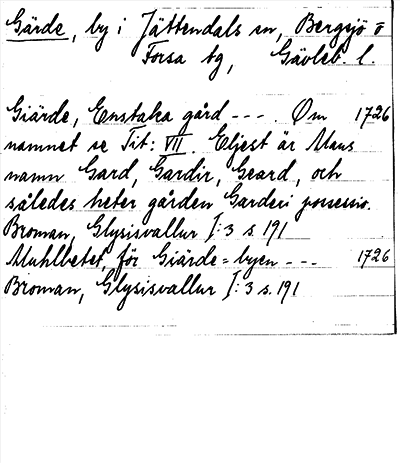 Gärde, by i Jättendals sn, Bergsjö o
Forsa tg, Gävleb. l.
Giärde, Enstaka gård - - - . Om 1726
namnet se Tit: VII. Eljest är Mans
namn Gard, Gardir, Geard, och
således heter gården Garderi possessio.
Broman, Glysisvallur I:3 s 191
Muhlbetet, för Giärde=byen - - - 1726
Broman, Glysisvallur I:3 s. 191